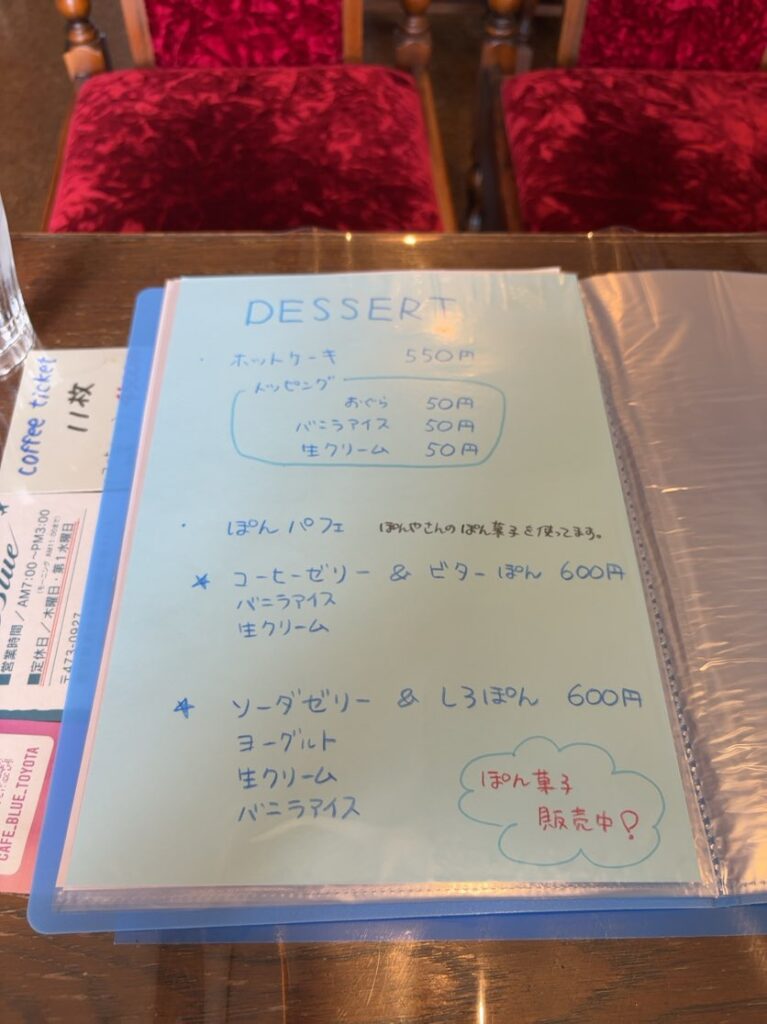 DESSERT
・ ホットケーキ 550円
トッピング
おぐら 50円
バニラアイス 50円
生クリーム 50円
・ ぽんパフェ ぽんやさんのぽん菓子を使ってます。
★ コーヒーゼリー & ビターぽん 600円
バニラアイス
生クリーム
★ ソーダゼリー & しろぽん 600円
ヨーグルト
生クリーム
バニラアイス
ぽん菓子
販売中!
Coffee ticket
11枚
Blue
■営業時間/AM7:00〜PM3:00
(モーニング AM11:00まで)
■定休日/木曜日・第1水曜日
〒473-0927
CAFE_BLUE_TOYOTA